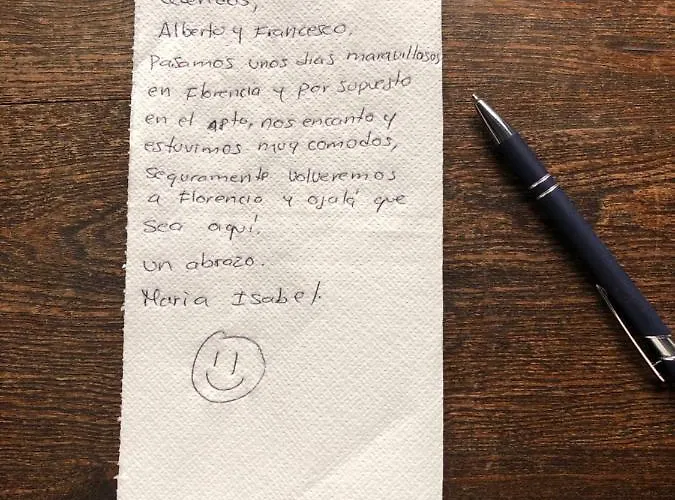 Alberto y Francesco,
Pasamos unos dias maravillosos
en Florencia y por supuesto
en el apto, nos encanto y
estuvimos muy comodos,
seguramente volveremos
a Florencia y ojalá que
sea aquí.
un abrazo.
Maria Isabel.